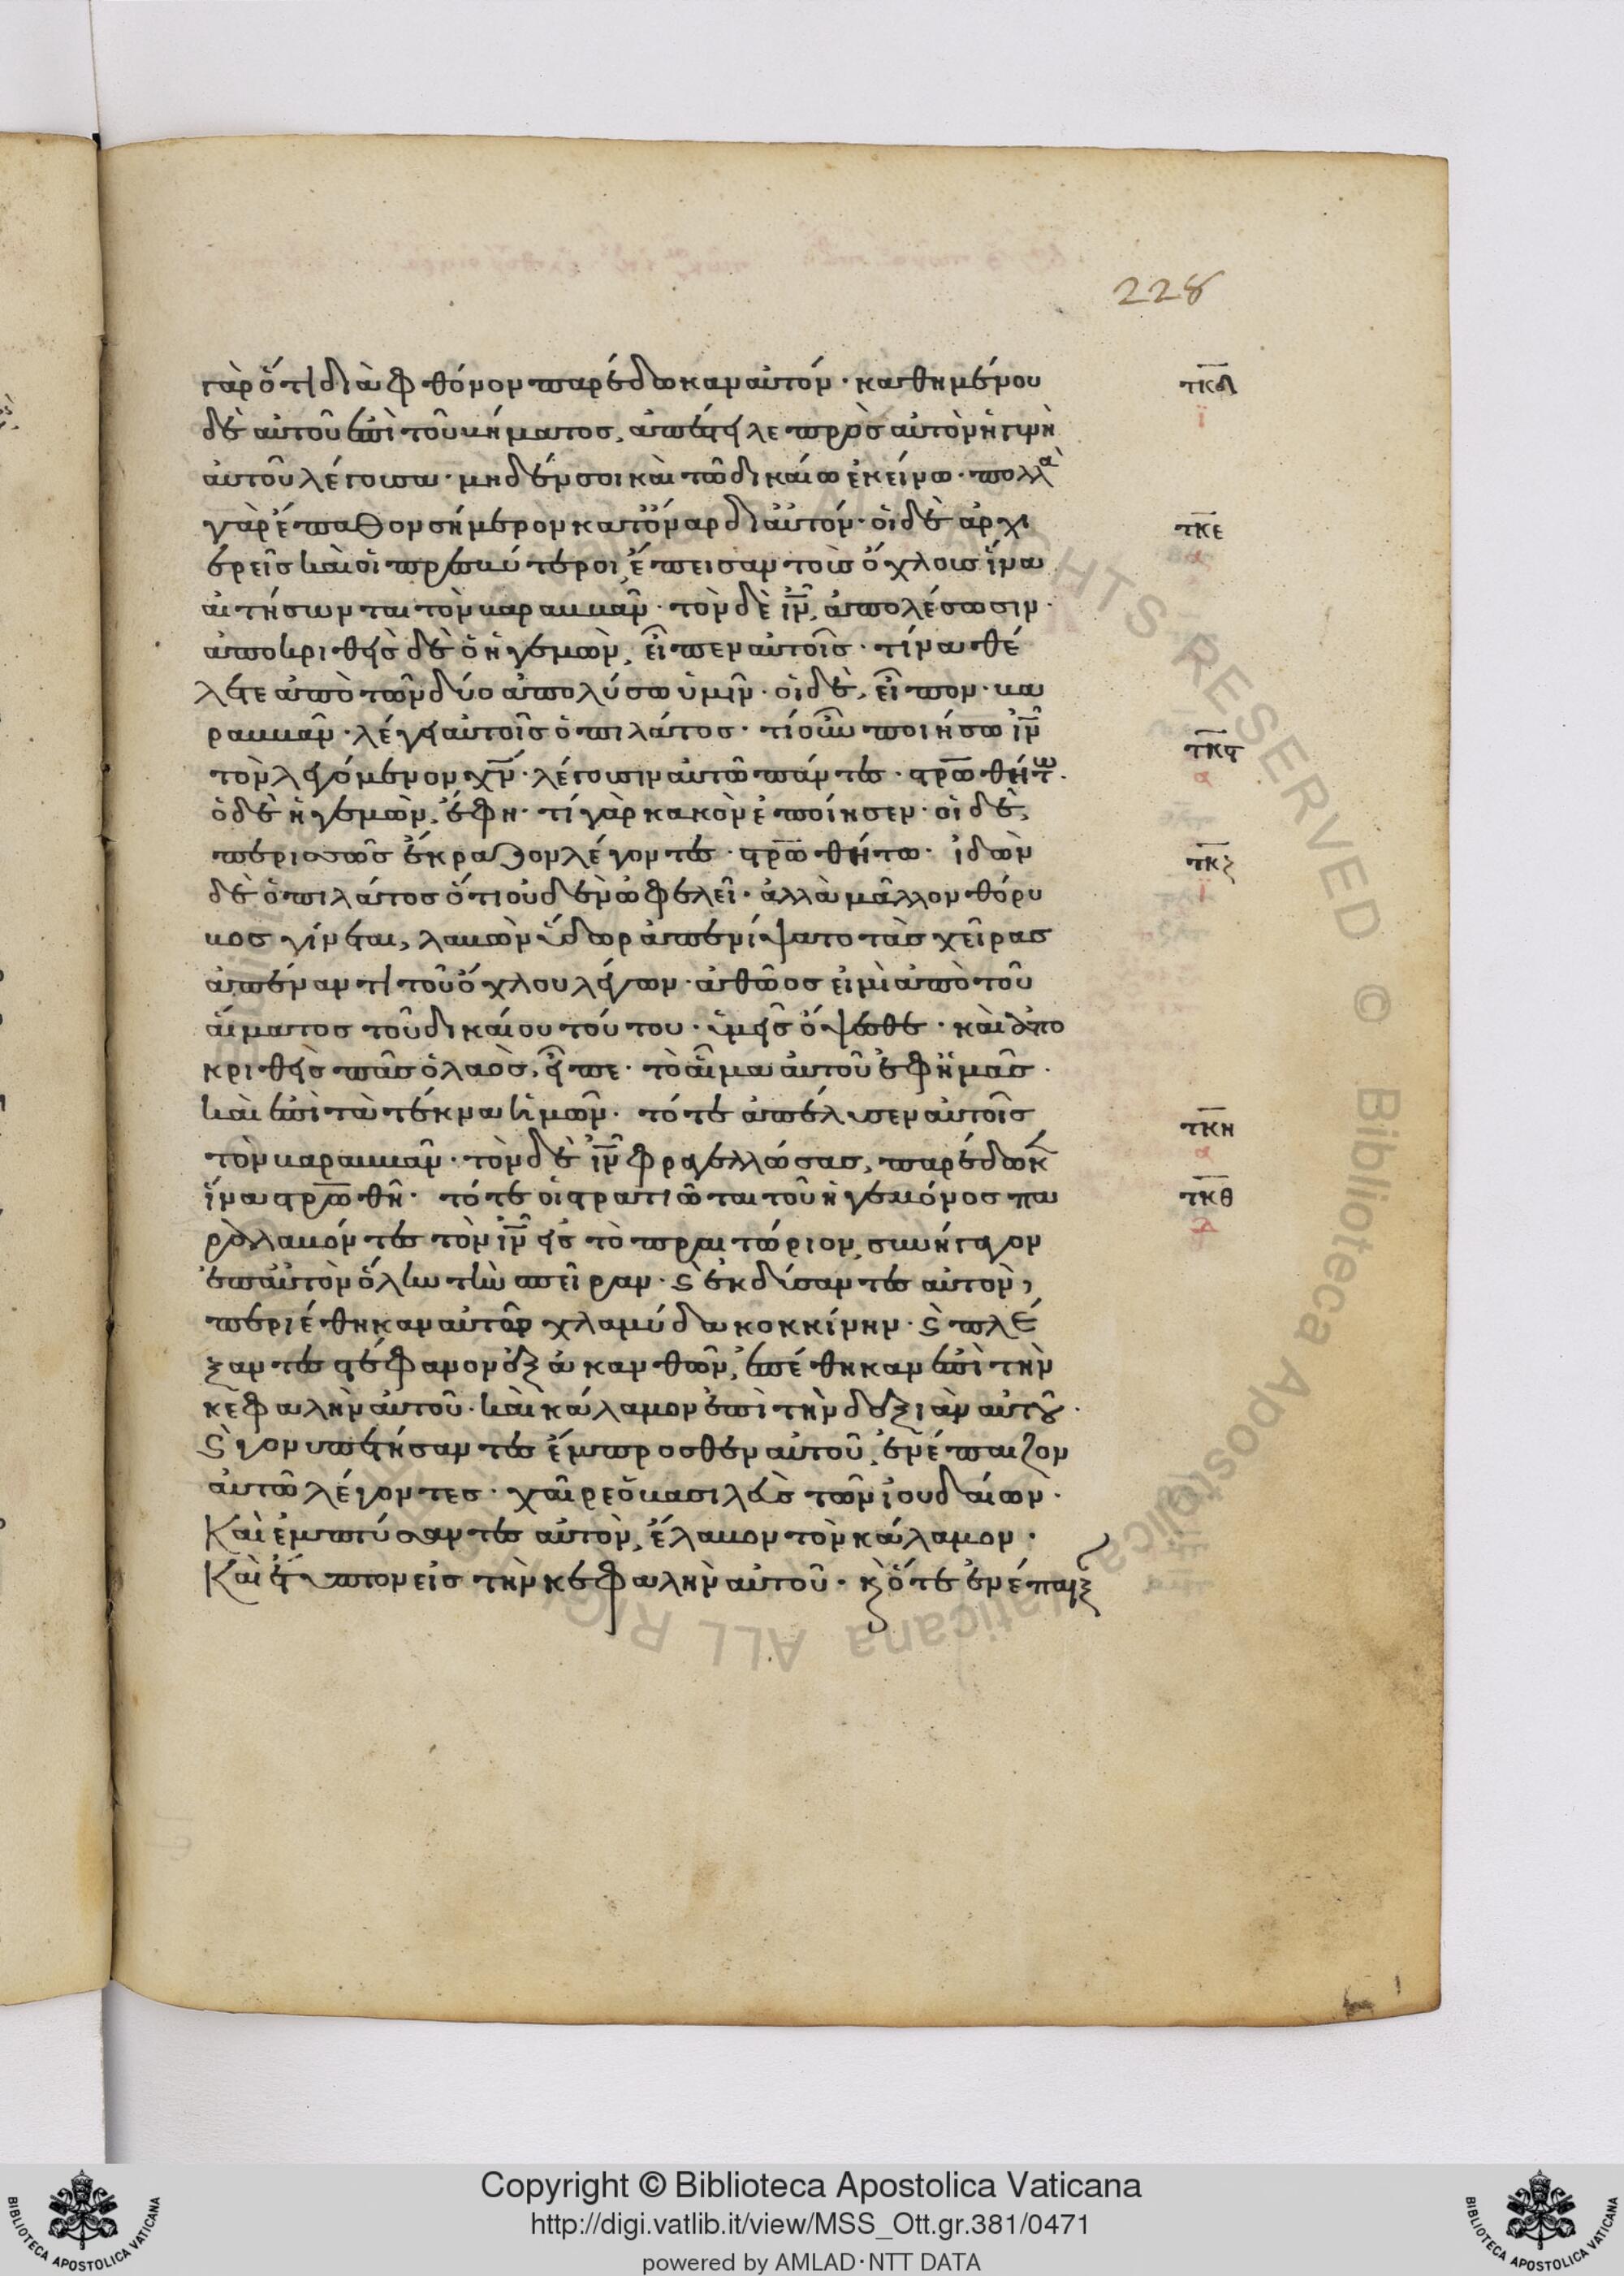 228
γὰρ ὅτι διὰ φθόνον παρέδωκαν αὐτόν · καθημένου
τκδ
ϊ
δὲ αὐτοῦ ἐπὶ τοῦ βήματος, ἀπέστειλε πρὸς αὐτὸν ἡ γυνὴ
αὐτοῦ λέγουσα · μηδέν σοι καὶ τῶ δικαίω ἐκείνω · πολλὰ
γὰρ ἔπαθον σήμερον κατ' ὄναρ δι' αὐτόν · οἱ δὲ ἀρχι
τκε
α
ερεῖς καὶ οἱ πρεσβύτεροι, ἔπεισαν τοὺς ὄχλους ἵνα
αἰτήσωνται τὸν βαραββᾶν · τὸν δὲ ιν, ἀπολέσωσιν ·
ἀποκριθεὶς δὲ ὁ ἡγεμὼν, εἶπεν αὐτοῖς · τίνα θέ
λετε ἀπὸ τῶν δύο ἀπολύσω ὑμῖν · οἱ δὲ, εἶπον · βα
ραββᾶν · λέγει αὐτοῖς ὁ πιλάτος · τί οὖν ποιήσω ιν
τκϛ
α
τὸν λεγόμενον χν · λέγουσιν αὐτῶ πάντες · στρωθήτω ·
ὁ δὲ ἡγεμὼν, ἔφη · τί γὰρ κακὸν ἐποίησεν · οἱ δὲ,
περισσῶς ἔκραζον λέγοντες · στρωθήτω · ἰδὼν
τκζ
ϊ
δὲ ὁ πιλάτος ὅτι οὐδὲν ὠφελεῖ · ἀλλὰ μᾶλλον θόρυ
βος γίνεται, λαβὼν ὕδωρ ἀπενίψατο τὰς χεῖρας
ἀπέναντι τοῦ ὄχλου λέγων · ἀθῶος εἰμὶ ἀπὸ τοῦ
αἵματος τοῦ δικαίου τούτου · ὑμεῖς ὄψεσθε · καὶ ἀπο
κριθεὶς πᾶς ὁ λαὸς, εἶπε · τὸ αἷμα αὐτοῦ ἐφ' ἡμᾶς ·
καὶ ἐπὶ τὰ τέκνα ἡμῶν · τότε ἀπέλυσεν αὐτοῖς
τκη
α
τὸν βαραββᾶν · τὸν δὲ ιν φραγελλώσας, παρέδωκ
ἵνα στρωθῆ · τότε οἱ στρατιῶται τοῦ ἡγεμόνος πα
τκθ
δ
ραλαβόντες τὸν ιν εἰς τὸ πραιτώριον, συνήγαγον
ἐπ' αὐτὸν ὅλην τὴν σπεῖραν · ϛ ἐκδύσαντες αὐτὸν,
περιέθηκαν αὐτὸν χλαμύδα κοκκίνην · ϛ πλέ
ξαντες στέφανον ἐξ ἀκανθῶν, ἐπέθηκαν ἐπὶ τὴν
κεφαλὴν αὐτοῦ · καὶ κάλαμον ἐπὶ τὴν δεξιὰν αὐτοῦ ·
ϛ γονυπετήσαντες ἔμπροσθεν αὐτοῦ, ἐνέπαιζον
αὐτῶ λέγοντες · χαῖρε ὁ βασιλεὺς τῶν ἰουδαίων ·
Καὶ ἐμπτύσαντες αὐτὸν, ἔλαβον τὸν κάλαμον ·
Καὶ ἔτυπτον εἰς τὴν κεφαλὴν αὐτοῦ · κ ὅτε ἐνέπαιξ
© Biblioteca Apostolica Vaticana ALL RIGHTS RESERVED
Copyright © Biblioteca Apostolica Vaticana
http://digi.vatlib.it/view/MSS_Ott.gr.381/0471
powered by AMLAD·NTT DATA
BIBLIOTECA APOSTOLICA VATICANA
BIBLIOTECA APOSTOLICA VATICANA